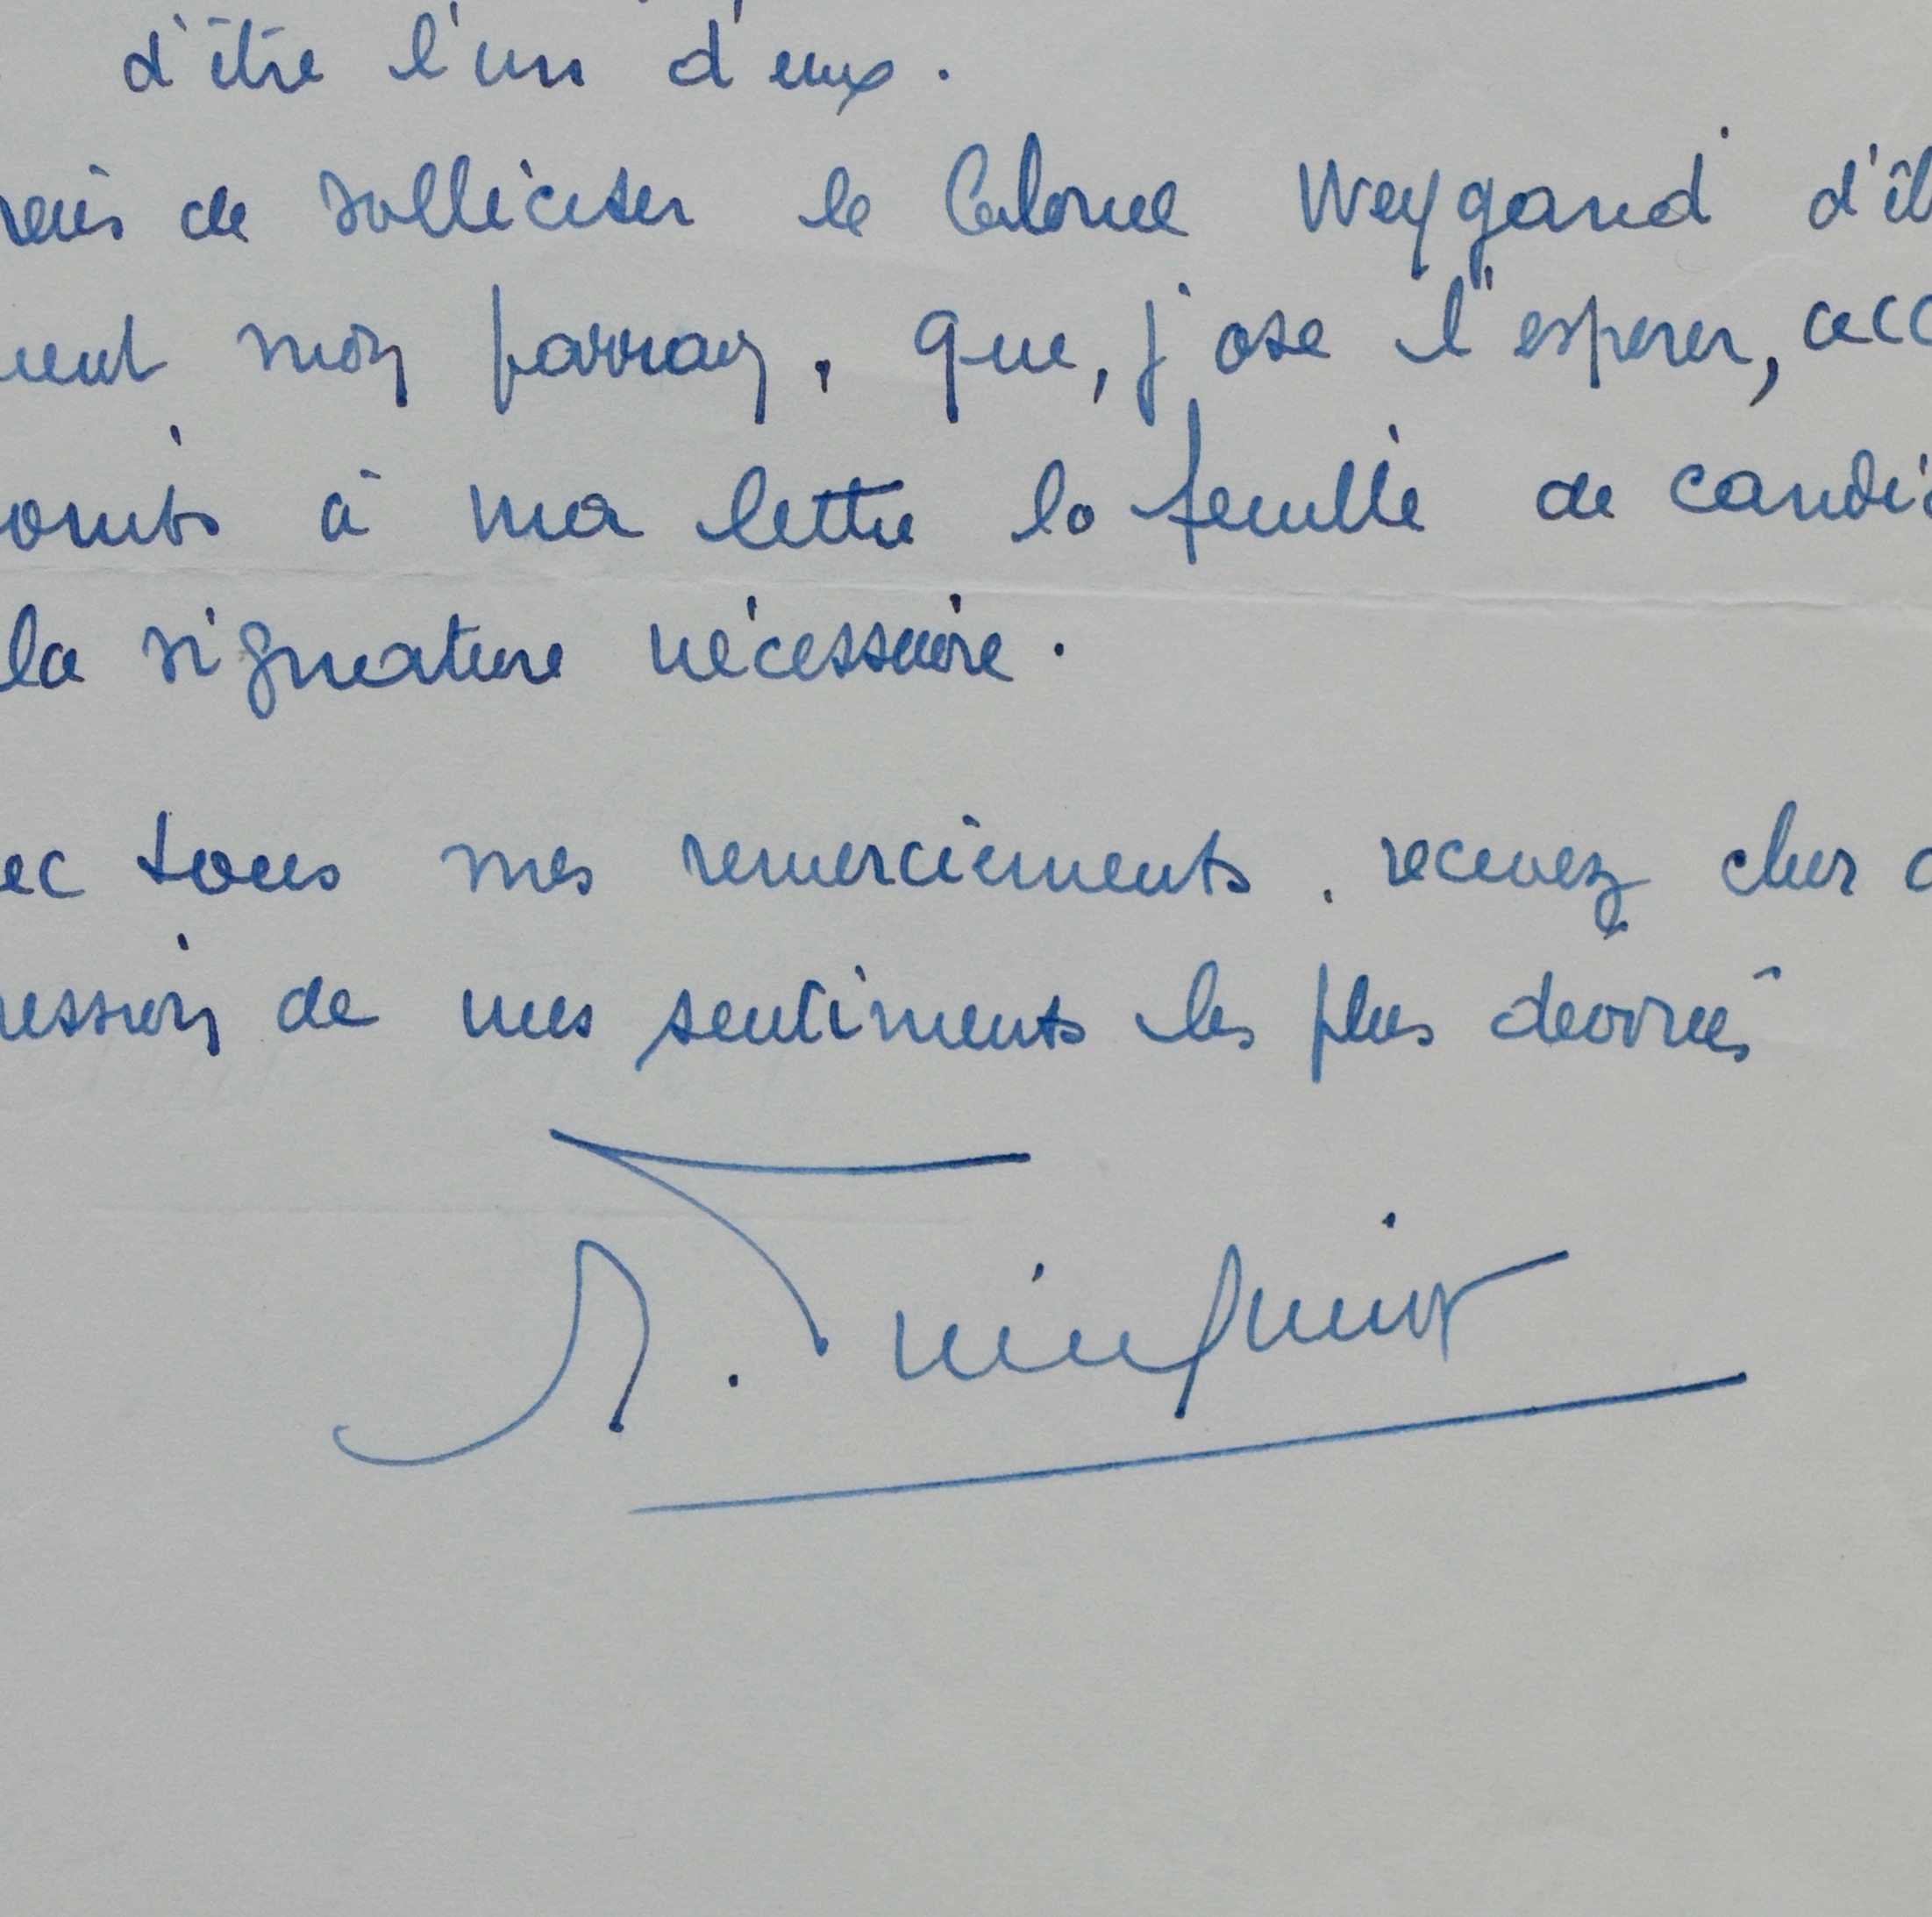 d'être l'un d'eux.
de solliciter le Colonel Weygand d'êt
mon parrain, que, j'ose l'esperer, acc
à ma lettre la feuille de candi
la signature nécessaire.
ec tous mes remerciements, recevez cher
ression de mes sentiments les plus devoués